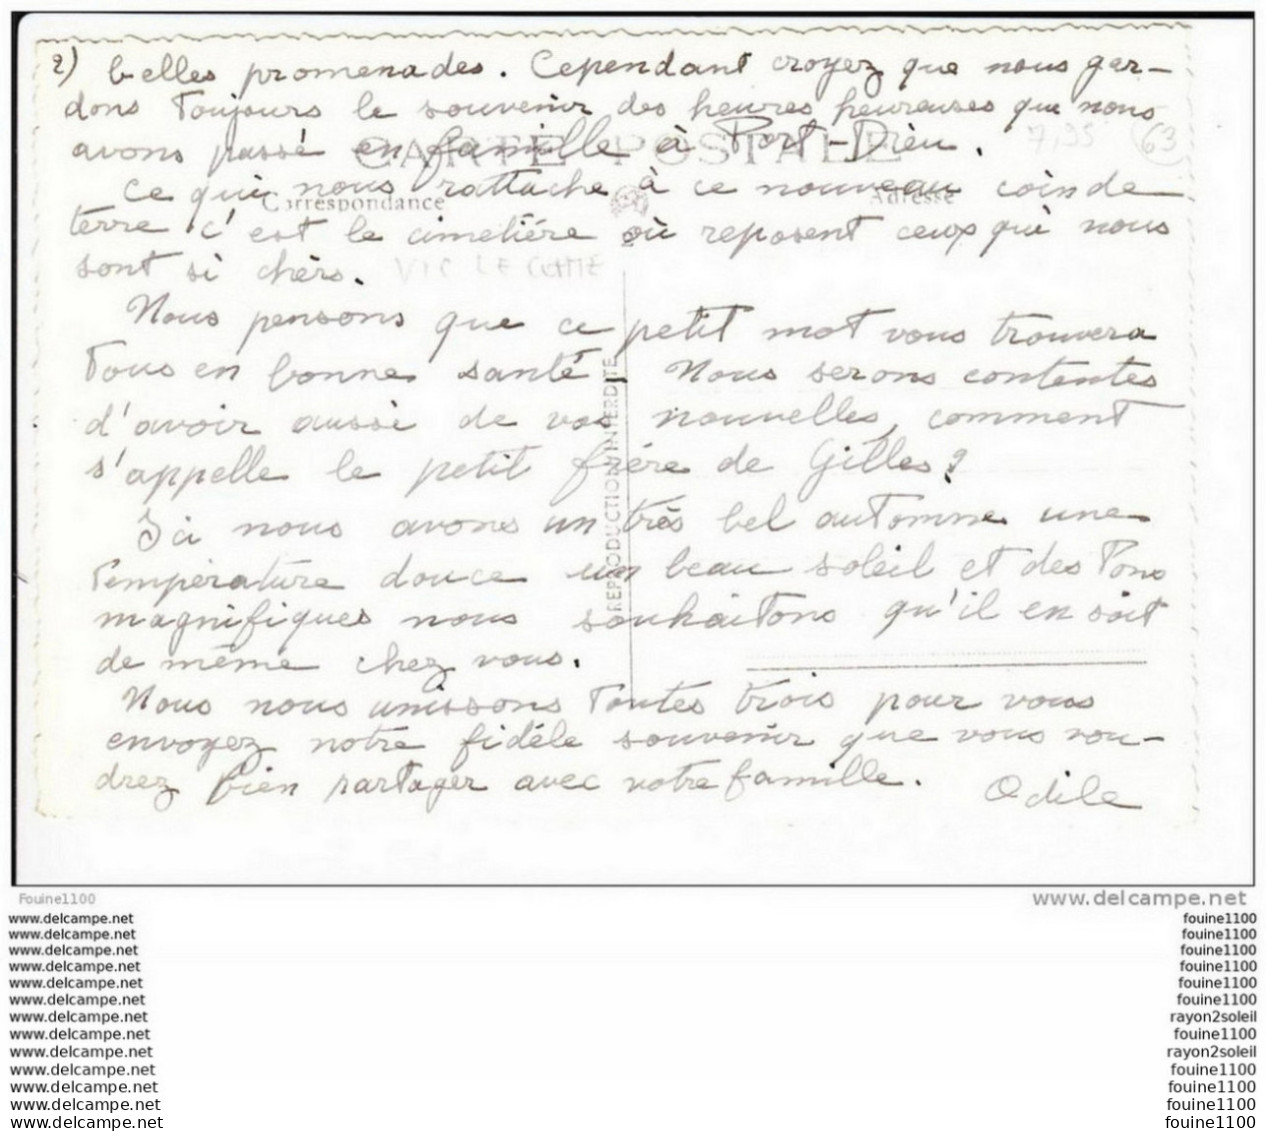 2) belles promenades. Cependant croyez que nous gar-
dons Toujours le souvenir des heures heureuses que nous
avons passé en famille à Port-Dieu.
CARTE POSTALE
7,35 63
ce qui nous rattache à ce nouveau coin de
Correspondance Adresse
terre c'est le cimetière où reposent ceux qui nous
sont si chers.
VIC LE COMTE
Nous pensons que ce petit mot vous trouvera
Tous en bonne santé. Nous serons contentes
d'avoir aussi de vos nouvelles, comment
s'appelle le petit frère de Gilles?
REPRODUCTION INTERDITE
Ici nous avons un très bel automne une
Température douce un beau soleil et des Tons
magnifiques nous souhaitons qu'il en soit
de même chez vous.
Nous nous unissons Toutes trois pour vous
envoyez notre fidèle souvenir que vous vou-
drez bien partager avec votre famille.
Odile
Fouine1100 www.delcampe.net
www.delcampe.net fouine1100
www.delcampe.net fouine1100
www.delcampe.net fouine1100
www.delcampe.net fouine1100
www.delcampe.net fouine1100
www.delcampe.net fouine1100
www.delcampe.net rayon2soleil
www.delcampe.net fouine1100
www.delcampe.net rayon2soleil
www.delcampe.net fouine1100
www.delcampe.net fouine1100
www.delcampe.net fouine1100
www.delcampe.net fouine1100